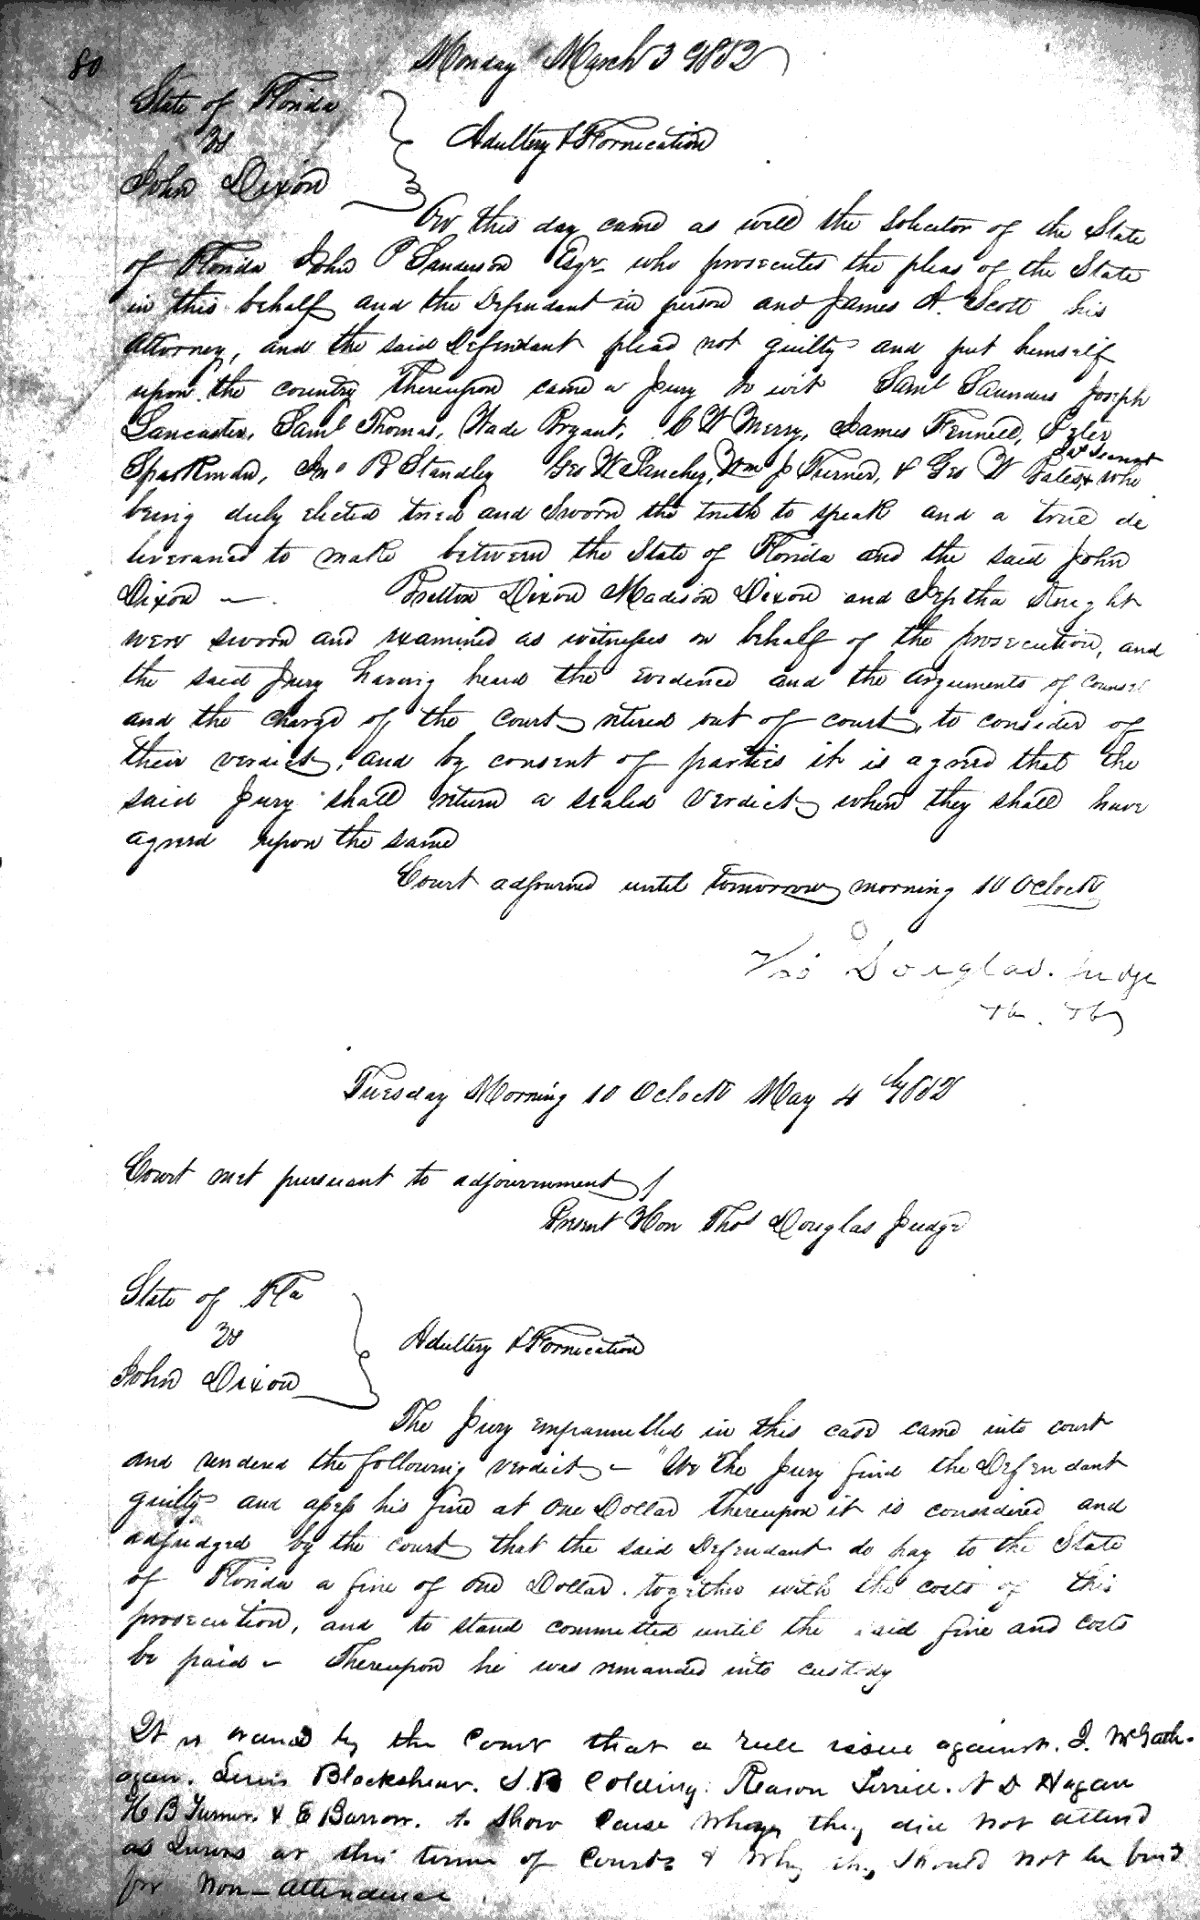 80
Monday March 3 1852
State of Florida
vs
John Dixon
Adultery & Fornication
On this day came as well the Solicitor of the State
of Florida John P Sanderson Esqr who prosecutes the pleas of the State
in this behalf and the Defendant in person and James A. Scott his
Attorney, and the said Defendant plead not guilty and put himself
upon the country Thereupon came a Jury to wit Saml Saunders Joseph
Lancaster, Saml Thomas, Wade Bryant, C W Merry, James Fennell, Peter
Sparkman, Jno R Standley Geo W Sanchez, Wm J Turner, & Geo W Bates, & who
being duly elected tried and Sworn the truth to speak and a true de
liverance to make between the State of Florida and the said John
Dixon — Dixon Madison Dixon and Jeptha
were sworn and examined as witnesses on behalf of the prosecution, and
the said Jury having heard the Evidence and the Arguments of Counsel
and the charge of the Court retired out of court, to consider of
their verdict, and by consent of parties it is agreed that the
said Jury shall return a sealed Verdict when they shall have
agreed upon the same
Court adjourned until tomorrow morning 10 Oclock
Thos Douglas. Judge
Tuesday Morning 10 Oclock May 4 1852
Court met pursuant to adjournment
Present Hon Thos Douglas Judge
State of Fla
vs
John Dixon
Adultery & Fornication
The Jury empannelled in this case came into court
and rendered the following verdict — "We the Jury find the Defendant
guilty and assess his fine at One Dollar Thereupon it is considered and
adjudged by the court that the said Defendant do pay to the State
of Florida a fine of one Dollar together with the costs of this
prosecution, and to stand committed until the said fine and costs
be paid — Thereupon he was remanded into custody
It is ordered by the Court that a rule issue against. J. McGath-
agan. Lewis Blackshear. J. B Colding. Reason Terrell. N D Hagan
H B Turner. & E Barrow. to Show Cause why they did not attend
as Jurors at this term of Court & why they should not be fined
for Non-attendence